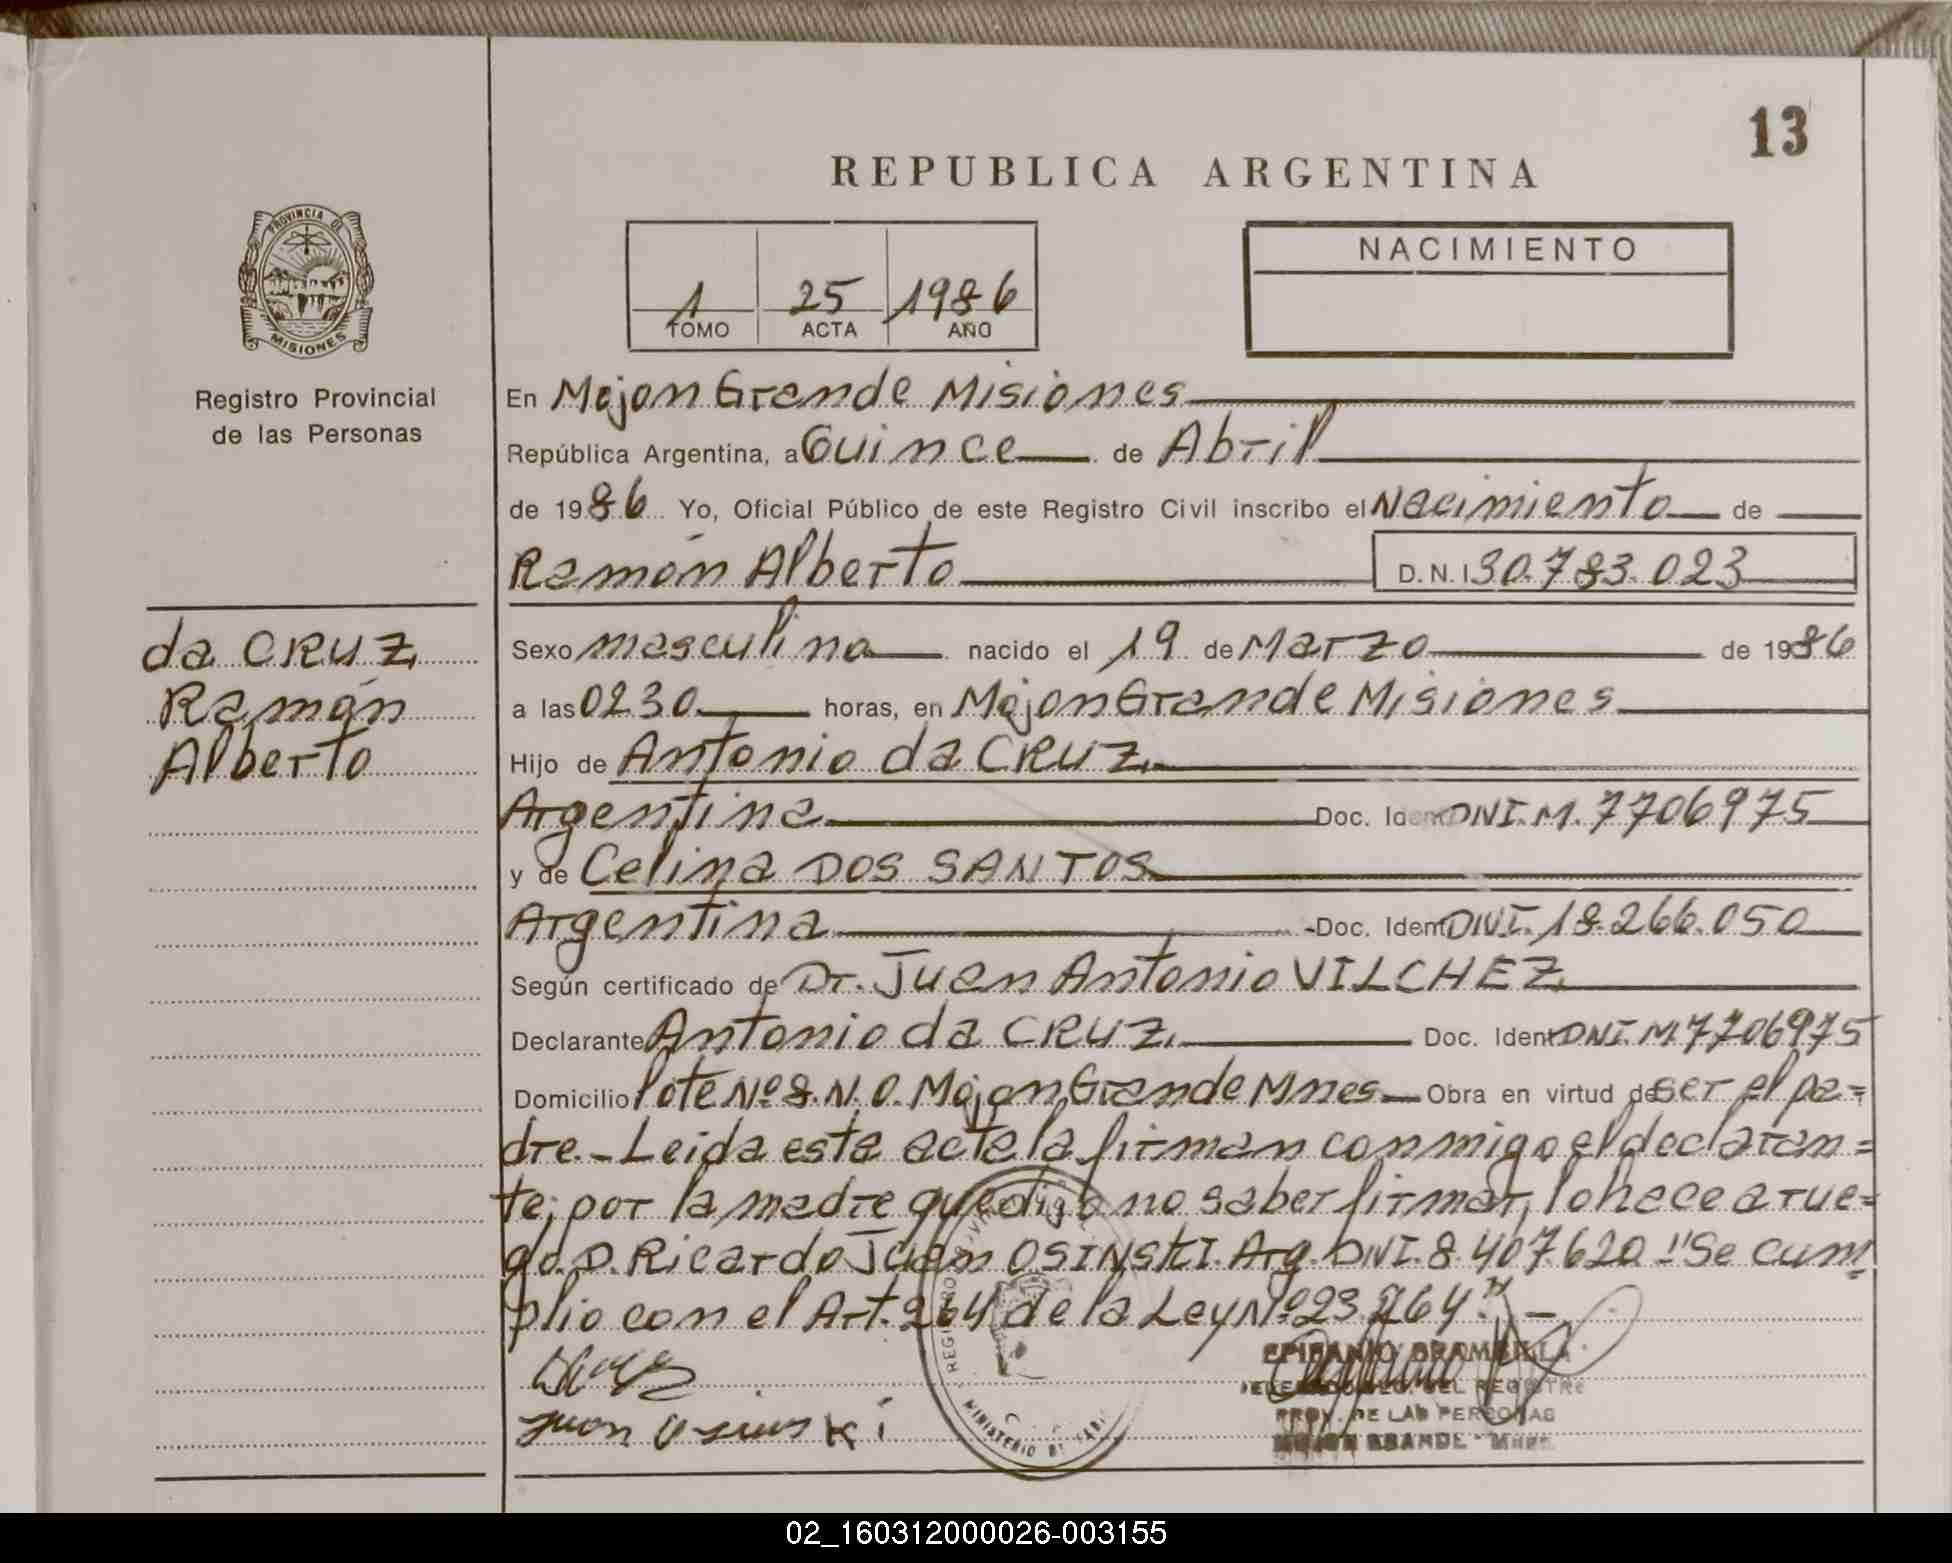 13
REPUBLICA ARGENTINA
PROVINCIA DE
MISIONES
1 25 1986
TOMO ACTA AÑO
NACIMIENTO
Registro Provincial
de las Personas
En Mojon Grande Misiones
República Argentina, a Quince de Abril
de 1986 Yo, Oficial Público de este Registro Civil inscribo el Nacimiento de
Ramón Alberto D.N.I 30.783.023
da CRUZ
Ramón
Alberto
Sexo masculino nacido el 19 de Marzo de 1986
a las 0230 horas, en Mojon Grande Misiones
Hijo de Antonio da CRUZ
Argentina Doc. Ident DNI.M. 7706975
y de Celina DOS SANTOS
Argentina Doc. Ident DNI. 18.266.050
Según certificado de Dr. Juan Antonio VILCHEZ
Declarante Antonio da CRUZ Doc. Ident DNI.M.7706975
Domicilio lote Nº 8.N.O. Mojon Grande Mnes Obra en virtud de ser el pa=
dre.- Leida esta acta la firman conmigo el declaran=
te; por la madre que dijo no saber firmar, lo hace a rue=
go D. Ricardo Juan OSINSKI. Arg. DNI. 8.407.620 "Se cum
plio con el Art. 264 de la Ley Nº 23.264". -
Juan Osinski
EPIFANIO BRAMBILLA
DEL REGISTRO
PROV. DE LAS PERSONAS
MOJON GRANDE - Mnes.
MINISTERIO DE
02_160312000026-003155